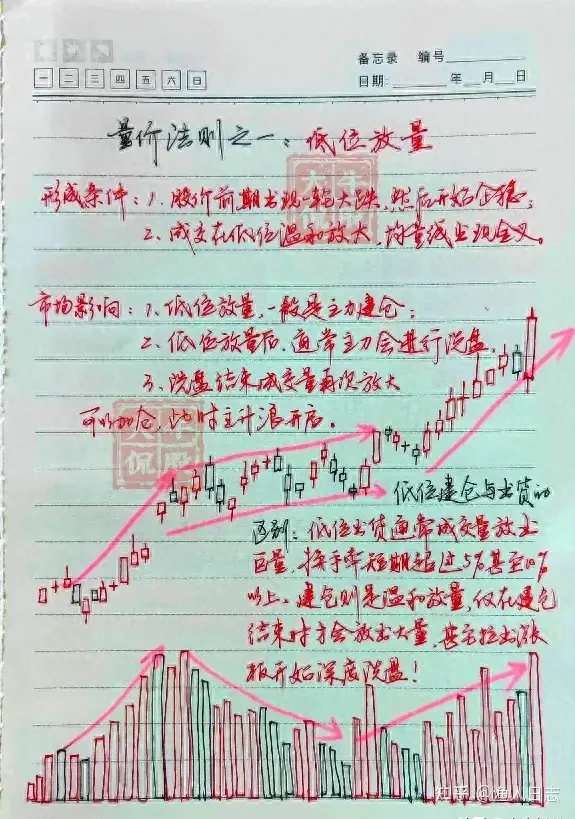 备忘录 编号
一 二 三 四 五 六 日
日期: 年 月 日
量价法则之一：低位放量
形成条件：1. 股价前期出现一轮大跌，然后开始企稳；
2. 成交在低位温和放大，均量线出现金叉。
市场影响：1. 低位放量，一般是主力建仓；
2. 低位放量后，通常主力会进行洗盘。
3. 洗盘结束成交量再次放大
可以加仓，此时主升浪开启。
大牛侃股
大牛侃股
低位建仓与出货的
区别：低位出货通常成交量放出
巨量，换手率短期超过5%甚至10%
以上。建仓则是温和放量，仅在建仓
结束时才会放出大量，甚至拉出涨
板开始深度洗盘！
知乎 @渔人日志